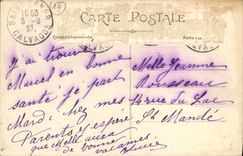 CARTE POSTALE
CORRESPONDANCE
ADRESSE
16 30
5 - 8
CALVADOS
J'ai trouvé
Marcel en bonne
santé je part
Mardi chez mes
Parents j'espère
que Melle aura
de bonne vacances
Melle Jeanne
Rousseau
14 rue du Lac
St Mandé